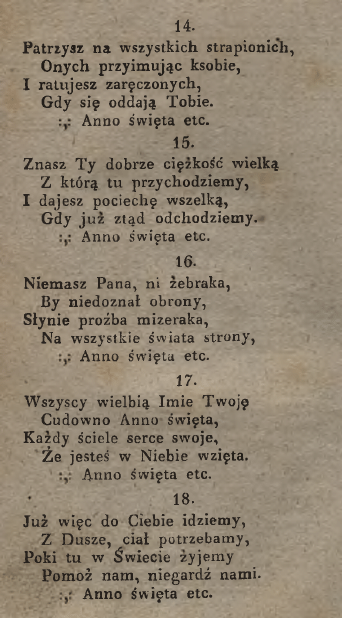 14.
Patrzysz na wszystkich strapionich,
Onych przyimując ksobie,
I ratujesz zaręczonych,
Gdy się oddają Tobie.
:,: Anno święta etc.
15.
Znasz Ty dobrze ciężkość wielką
Z którą tu przychodziemy,
I dajesz pociechę wszelką,
Gdy już ztąd odchodziemy.
:,: Anno święta etc.
16.
Niemasz Pana, ni żebraka,
By niedoznał obrony,
Słynie proźba mizeraka,
Na wszystkie świata strony,
:,: Anno święta etc.
17.
Wszyscy wielbią Imie Twoję
Cudowno Anno święta,
Każdy ściele serce swoje,
Że jesteś w Niebie wzięta.
:,: Anno święta etc.
18.
Już więc do Ciebie idziemy,
Z Dusze, ciał potrzebamy,
Poki tu w Świecie żyjemy
Pomoż nam, niegardź nami.
:,: Anno święta etc.